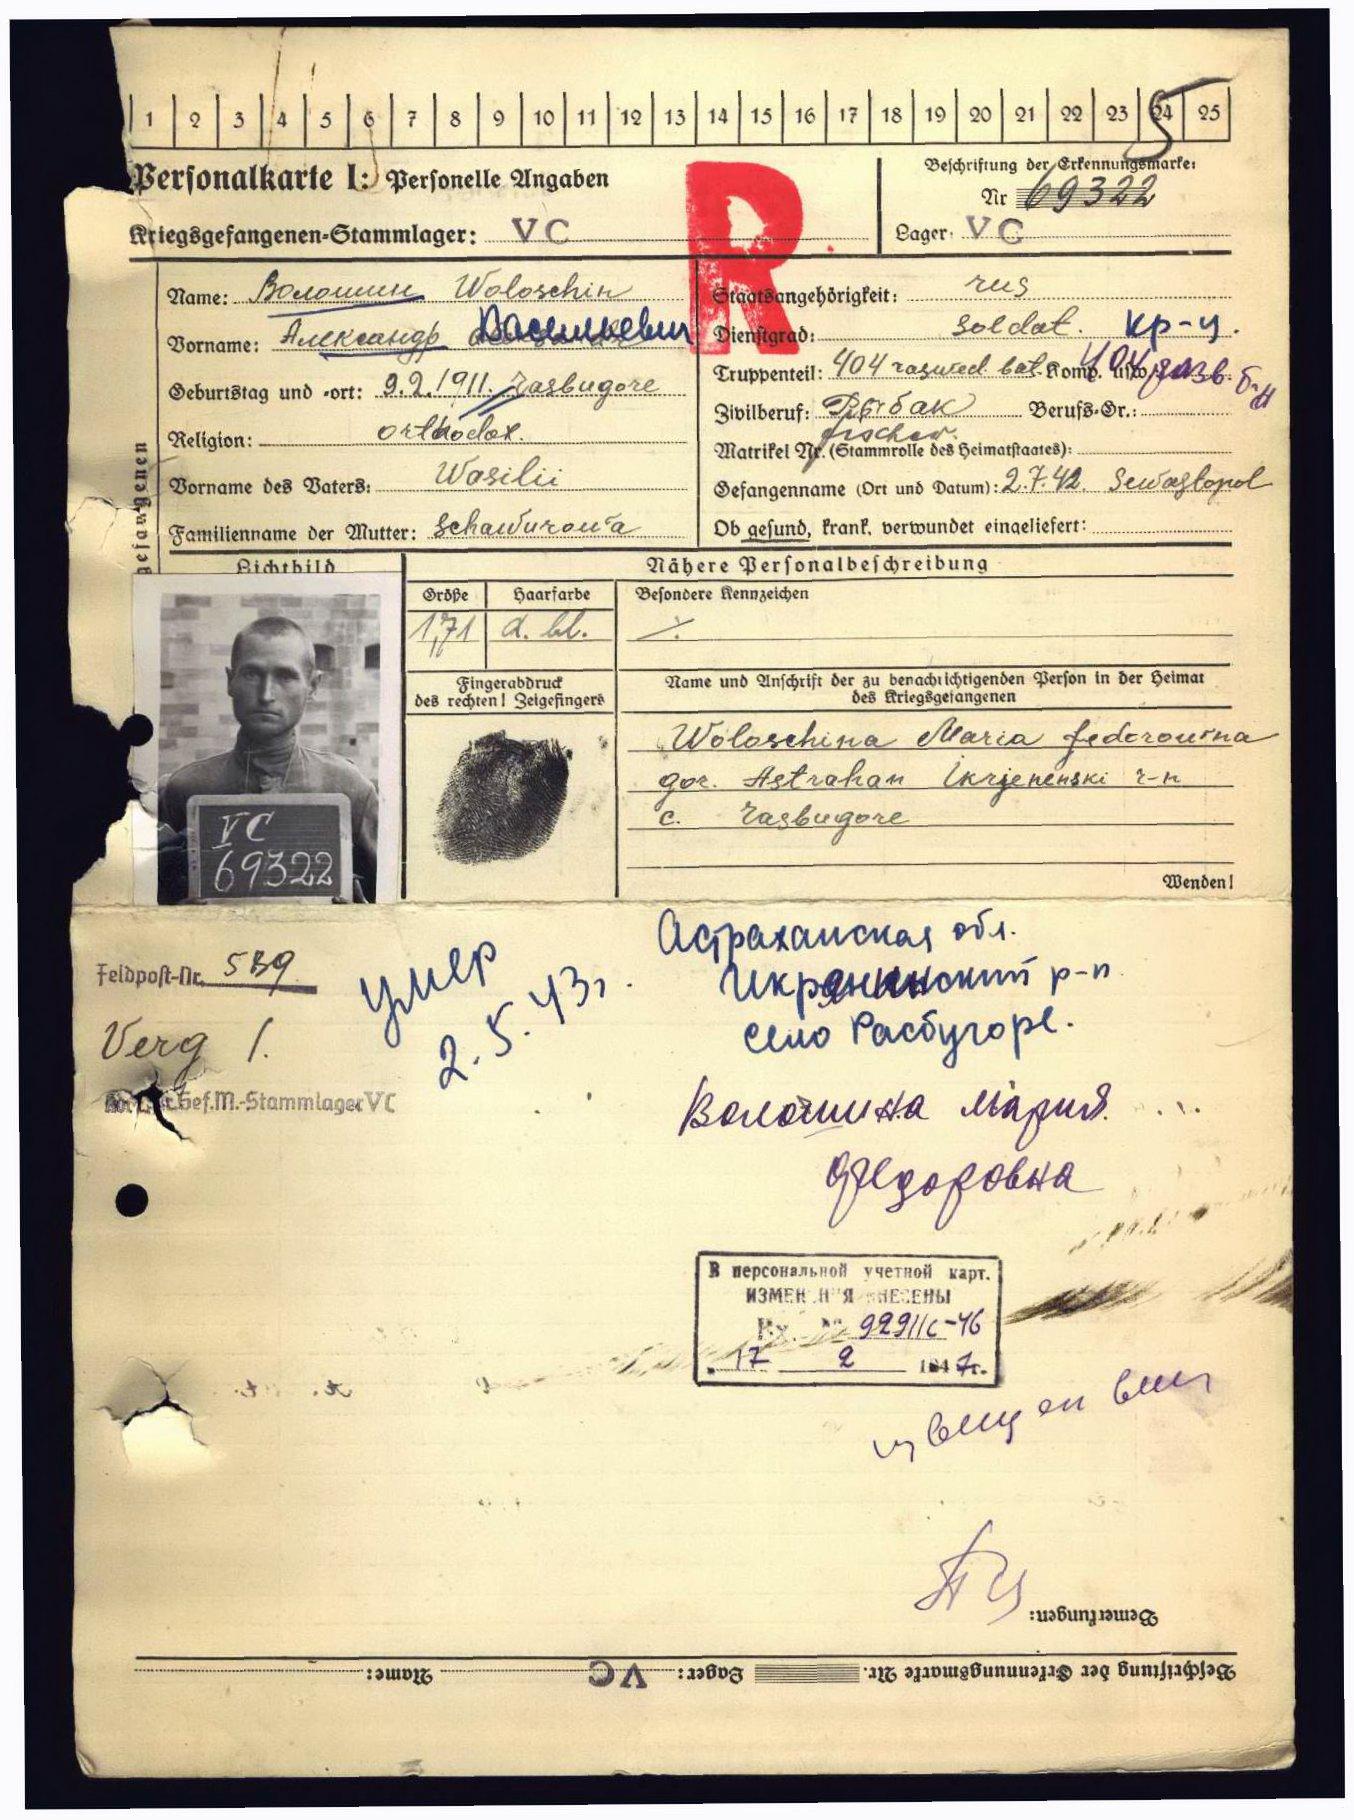 1 2 3 4 5 6 7 8 9 10 11 12 13 14 15 16 17 18 19 20 21 22 23 24 25
5
Personalkarte I: Personelle Angaben
Kriegsgefangenen-Stammlager: VC
R
Beschriftung der Erkennungsmarke:
Nr 69322
Lager: VC
gefangenen
Name: Волошин Woloschin
Vorname: Александр Васильевич
Geburtstag und -ort: 9.2.1911. Rasbugore
Religion: orthodox.
Vorname des Vaters: Wasilii
Familienname der Mutter: Schawurowa
Staatsangehörigkeit: rus
Dienstgrad: Soldat. кр-ц.
Truppenteil: 404 raswed bat. Komp. usw. 404 разв. б-н
Zivilberuf: Рыбак Berufs-Gr.:
fischer.
Matrikel Nr. (Stammrolle des Heimatstaates):
Gefangenname (Ort und Datum): 2.7.42. Sewastopol
Ob gesund, krank, verwundet eingeliefert:
Lichtbild
VC
69322
Nähere Personalbeschreibung
Größe Haarfarbe Besondere Kennzeichen
1,71 d. bl. ./.
Fingerabdruck
des rechten! Zeigefingers
Name und Anschrift der zu benachrichtigenden Person in der Heimat
des Kriegsgefangenen
Woloschina Maria Fedorowna
gor. Astrahan Ikrjenenski r-n
c. Rasbugore
Wenden!
Feldpost-Nr. 539
Verg 1.
Gef.M.-Stammlager VC
умер
2.5.43г.
Астраханская обл.
Икрянинский р-н
село Расбугоре.
Волошина Мария
Федоровна
В персональной учетной карт.
ИЗМЕНЕНИЯ ВНЕСЕНЫ
Вх. № 92911с-46
17 2 1947г.
Bemerkungen:
Beschriftung der Erkennungsmarke Nr. Lager: VC Name: